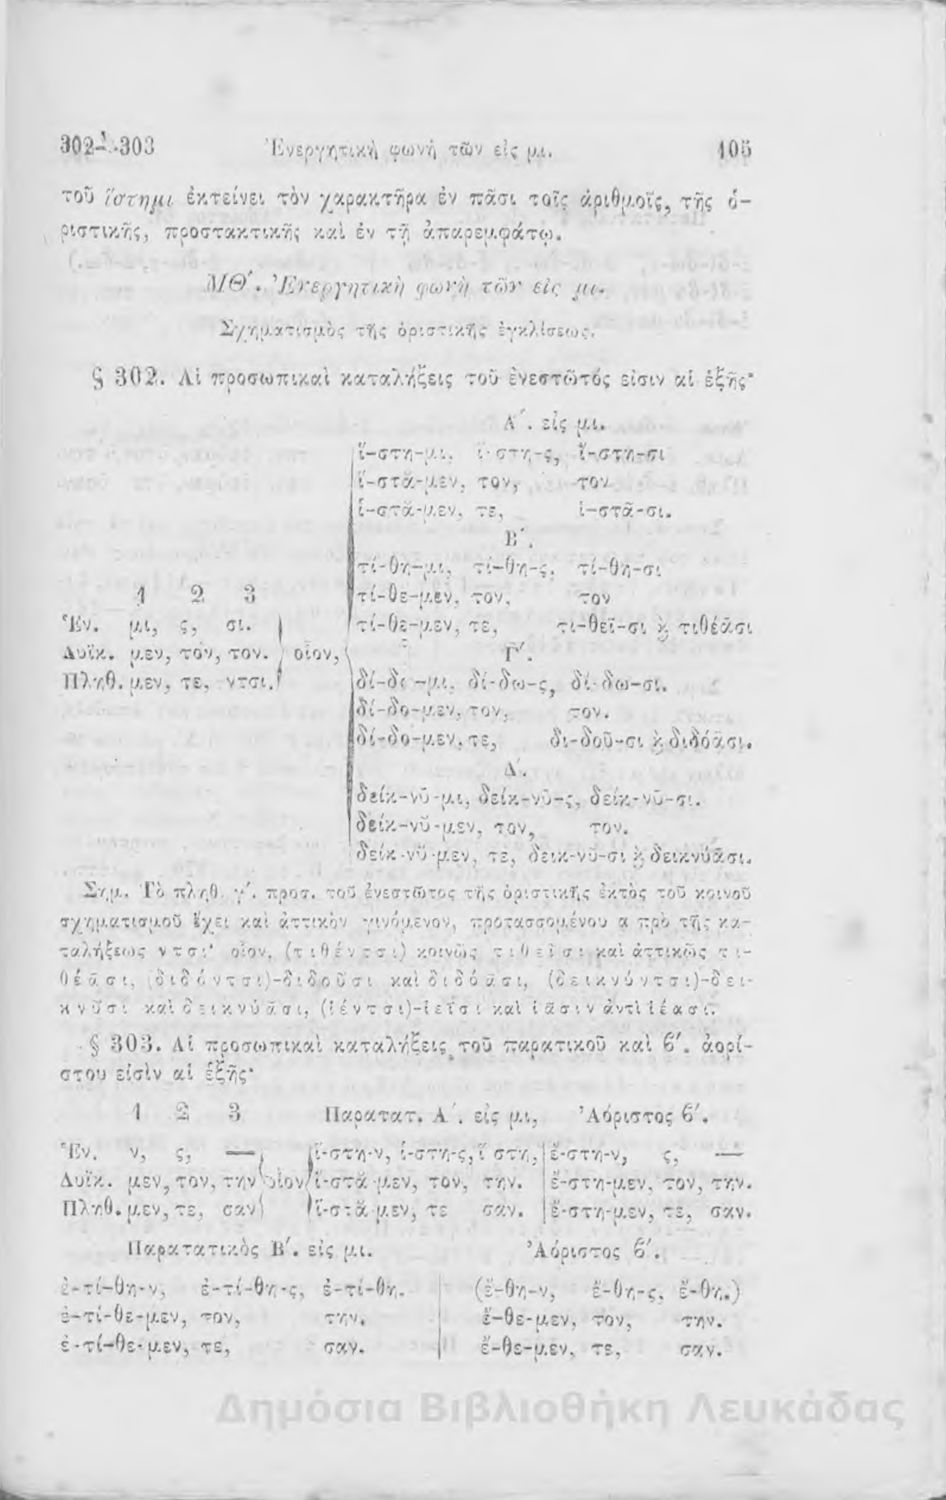 302—303 Ἐνεργητικὴ φωνὴ τῶν εἰς μι. 105
τοῦ ἵστημι ἐκτείνει τὸν χαρακτῆρα ἐν πᾶσι τοῖς ἀριθμοῖς, τῆς ὁ-
ριστικῆς, προστακτικῆς καὶ ἐν τῇ ἀπαρεμφάτῳ.
ΜΘ΄. Ἐνεργητικὴ φωνὴ τῶν εἰς μι.
Σχηματισμὸς τῆς ὁριστικῆς ἐγκλίσεως.
§ 302. Αἱ προσωπικαὶ καταλήξεις τοῦ ἐνεστῶτός εἰσιν αἱ ἑξῆς·
Α΄. εἰς μι.
ἵ-στη-μι, ἵ-στη-ς, ἵ-στη-σι
ἵ-στᾰ-μεν, τον, -τον
ἵ-στᾰ-μεν, τε, ἱ-στᾶ-σι.
Β΄.
τί-θη-μι, τί-θη-ς, τί-θη-σι
1 2 3 τί-θε-μεν, τον, -τον
Ἑν. μι, ς, σι. τί-θε-μεν, τε, τι-θεῖ-σι ϗ τιθέᾱσι
Δυϊκ. μεν, τον, τον. οἷον, Γ΄.
Πληθ. μεν, τε, ντσι. δί-δω-μι, δί-δω-ς, δί-δω-σι.
δί-δο-μεν, τον, -τον.
δί-δο-μεν, τε, δι-δοῦ-σι ϗ διδόᾱσι.
Δ΄.
δείκ-νῡ-μι, δείκ-νῡ-ς, δείκ-νῡ-σι.
δείκ-νῠ-μεν, τον, τον.
δείκ-νῠ-μεν, τε, δεικ-νῦ-σι ϗ δεικνύᾱσι.
Σημ. Τὸ πληθ. γ΄. προσ. τοῦ ἐνεστῶτος τῆς ὁριστικῆς ἐκτὸς τοῦ κοινοῦ
σχηματισμοῦ ἔχει καὶ ἀττικὸν γινόμενον, προτασσομένου α πρὸ τῆς κα-
ταλήξεως ντσι· οἷον, (τιθέντσι) κοινῶς τιθεῖσι καὶ ἀττικῶς τι-
θέᾱσι, (διδόντσι)-διδοῦσι καὶ διδόᾱσι, (δεικνύντσι)-δει-
κνῦσι καὶ δεικνύᾱσι, (ἱέντσι)-ἱεῖσι καὶ ἱᾶσιν ἀντὶ ἱέασι.
§ 303. Αἱ προσωπικαὶ καταλήξεις τοῦ παρατικοῦ καὶ β΄. ἀορί-
στου εἰσὶν αἱ ἑξῆς·
1 2 3 Παρατατ. Α΄. εἰς μι, Ἀόριστος β΄.
Ἑν. ν, ς, — ἵ-στη-ν, ἵ-στη-ς, ἵ στη, ἔ-στη-ν, ς, —
Δυϊκ. μεν, τον, την οἷον ἵ-στᾰ-μεν, τον, την. ἔ-στη-μεν, τον, την.
Πληθ. μεν, τε, σαν ἵ-στᾰ-μεν, τε σαν. ἔ-στη-μεν, τε, σαν.
Παρατατικὸς Β΄. εἰς μι. Ἀόριστος β΄.
ἐ-τί-θη-ν, ἐ-τί-θη-ς, ἐ-τί-θη. (ἔ-θη-ν, ἔ-θη-ς, ἔ-θη.)
ἐ-τί-θε-μεν, τον, την. ἔ-θε-μεν, τον, την.
ἐ-τί-θε-μεν, τε, σαν. ἔ-θε-μεν, τε, σαν.
Δημόσια Βιβλιοθήκη Λευκάδας